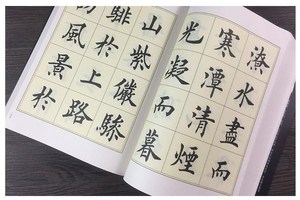 潦水盡而
寒潭清煙
光凝而暮
山紫儼驂
騑於上路
風景於